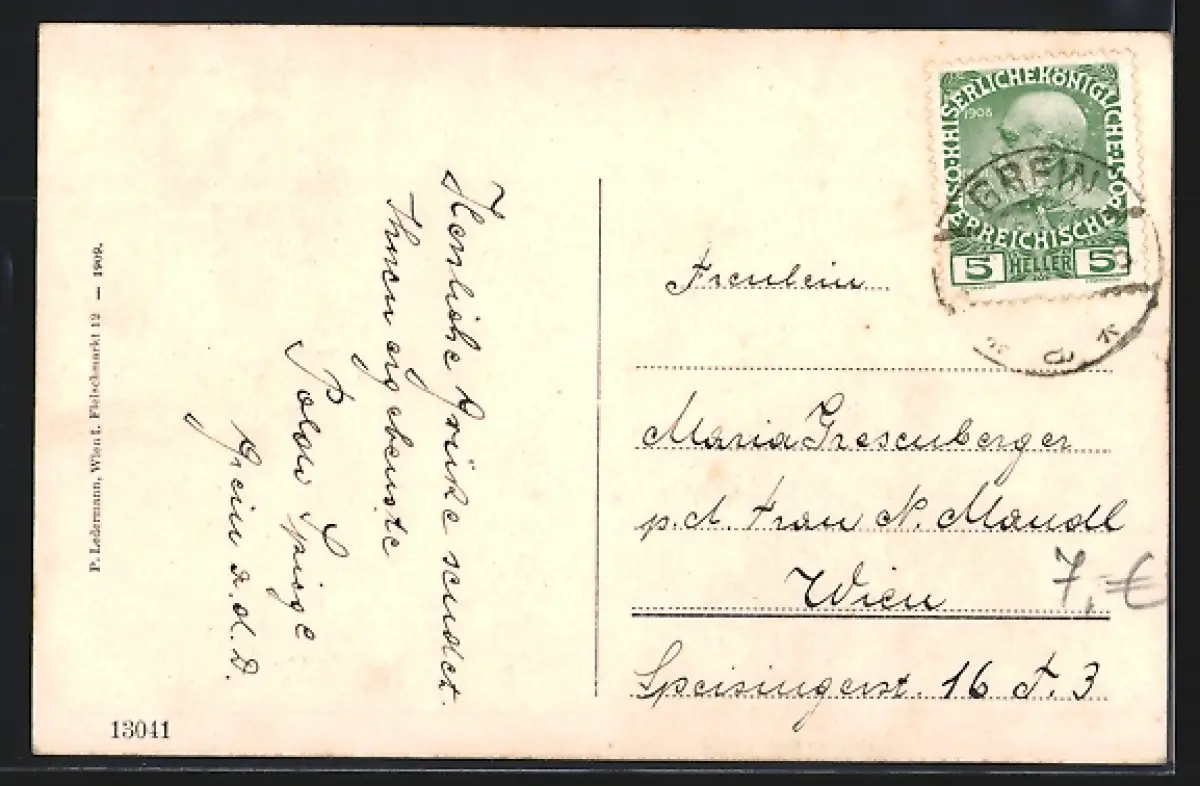 P. Ledermann, Wien I. Fleischmarkt 12 — 1909.
Herzliche Grüße sendet
Ihnen ergebenste
Poldi
Grein a. d. D.
13041
KAISERLICHE KÖNIGLICHE ÖSTERREICHISCHE
1908
5 HELLER 5
GREIN
Fräulein
Maria Gresenberger
p. A. Frau N. Mandl
Wien
Speisingerst. 16 T. 3
7,-€